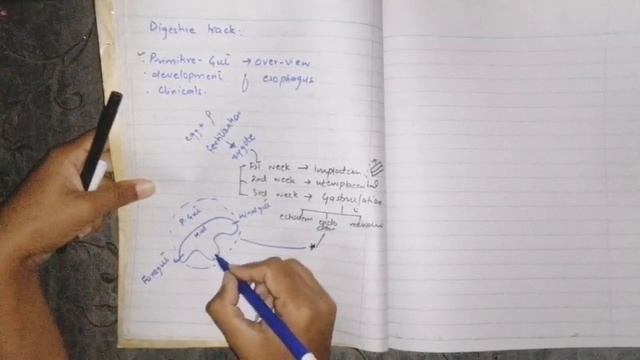 Digestive track:
. Primitive-Gut → over-view
. development of esophagus
. Clinicals.
egg + 
fertilization
zygote
1st week → Implantation
2nd week →
3rd week → Gastrulation
ectoderm endo derm
P. Gut
Hindgut
Mid
Foregut